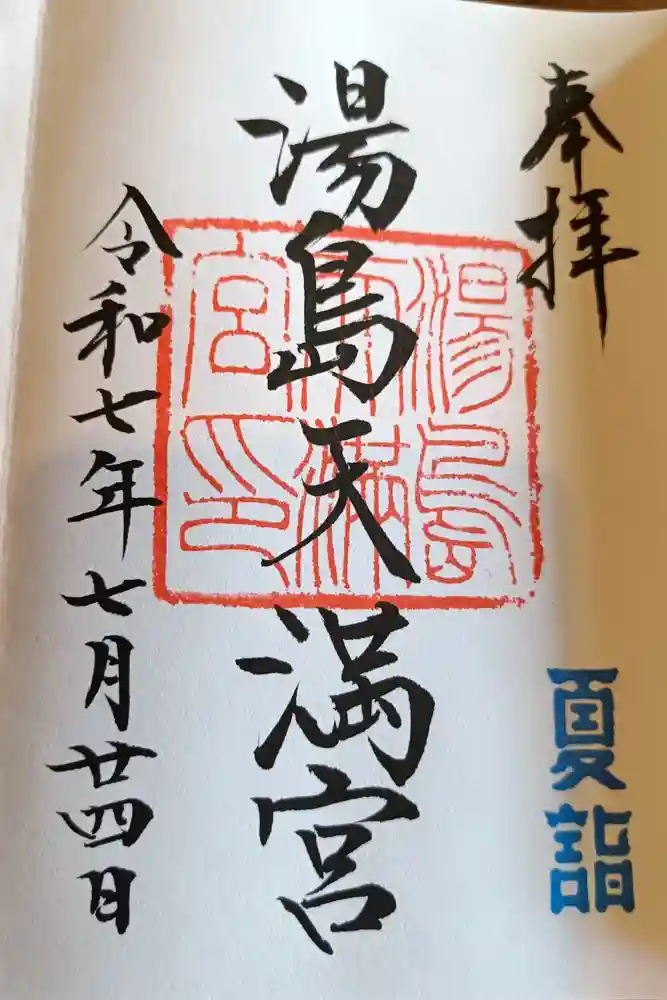 奉拝
夏詣
湯島天満宮
湯島天満宮印
令和七年七月廿四日